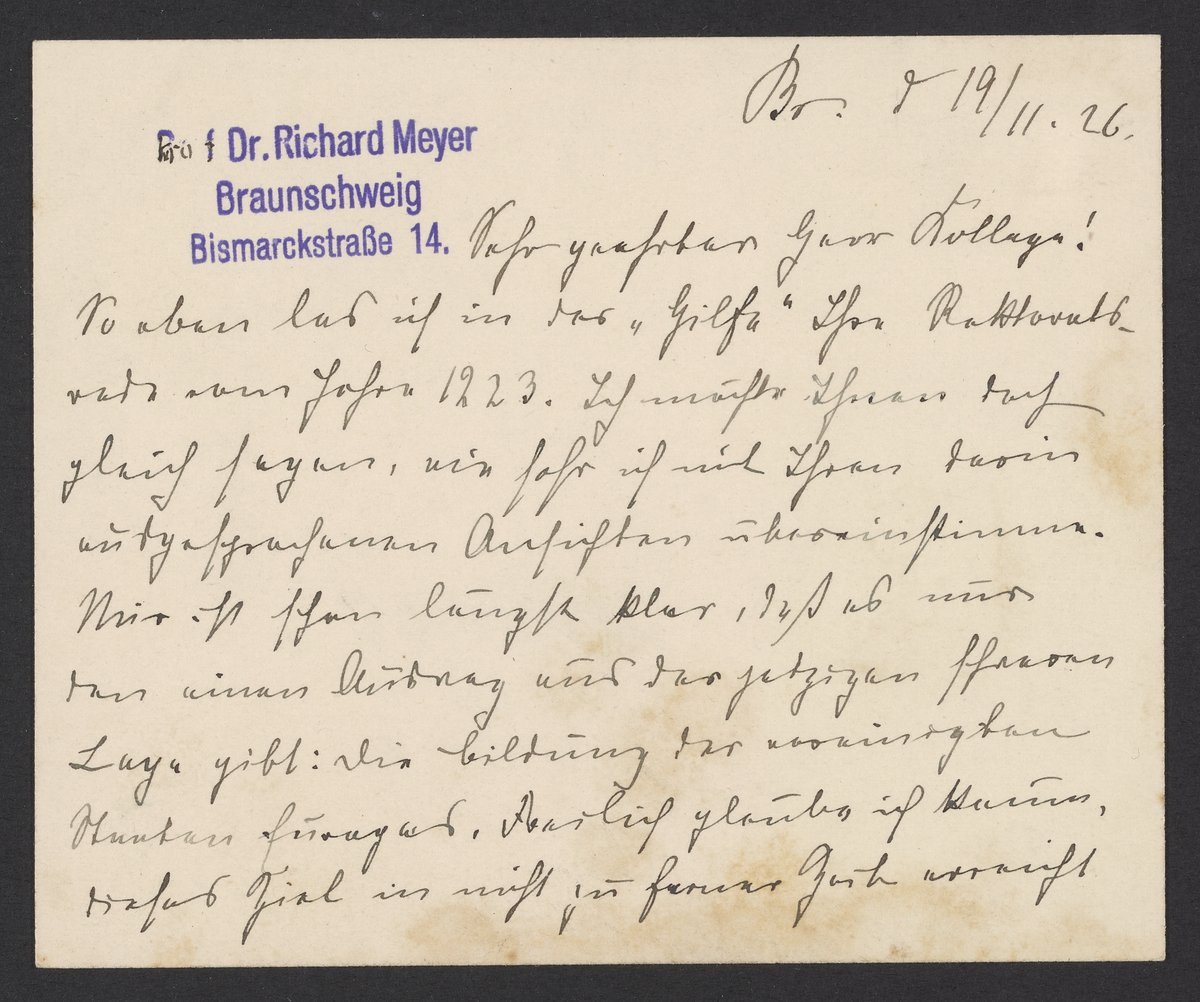 Br. d 19/11. 26.
Prof Dr. Richard Meyer
Braunschweig
Bismarckstraße 14.
Sehr geehrter Herr Kollege!
So eben las ich in der „Hilfe“ Ihre Rektorats-
rede vom Jahre 1923. Ich möchte Ihnen doch
gleich sagen, wie sehr ich mit Ihren darin
ausgesprochenen Ansichten übereinstimme.
Mir ist schon längst klar, daß es nur
den einen Ausweg aus der jetzigen schweren
Lage gibt: die Bildung der vereinigten
Staaten Europas. Freilich glaube ich kaum,
dieses Ziel in nicht zu ferner Zeit erreicht